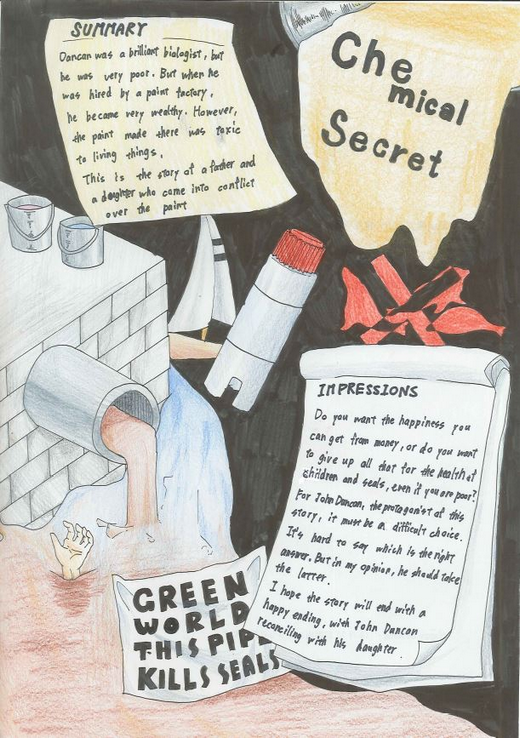 SUMMARY
Dancan was a brilliant biologist, but
he was very poor. But when he
was hired by a paint factory,
he became very wealthy. However,
the paint made there was toxic
to living things.
This is the story of a father and
a daughter who come into conflict
over the paint
Che
mical
Secret
IMPRESSIONS
Do you want the happiness you
can get from money, or do you want
to give up all that for the health of
children and seals, even if you are poor?
For John Duncan, the protagonist of this
story, it must be a difficult choice.
It's hard to say which is the right
answer. But in my opinion, he should take
the latter.
I hope the story will end with a
happy ending, with John Duncan
reconciling with his daughter.
GREEN
WORLD
THIS PIPE
KILLS SEALS